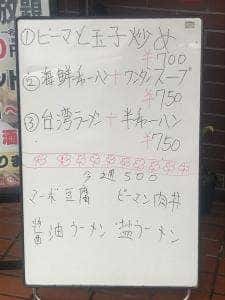 ①ピーマンと玉子炒め
￥700
②海鮮チャーハン＋ワンタンスープ
￥750
③台湾ラーメン＋半チャーハン
￥750
今週500
マーボ豆腐 ピーマン肉丼
醤油ラーメン 塩ラーメン